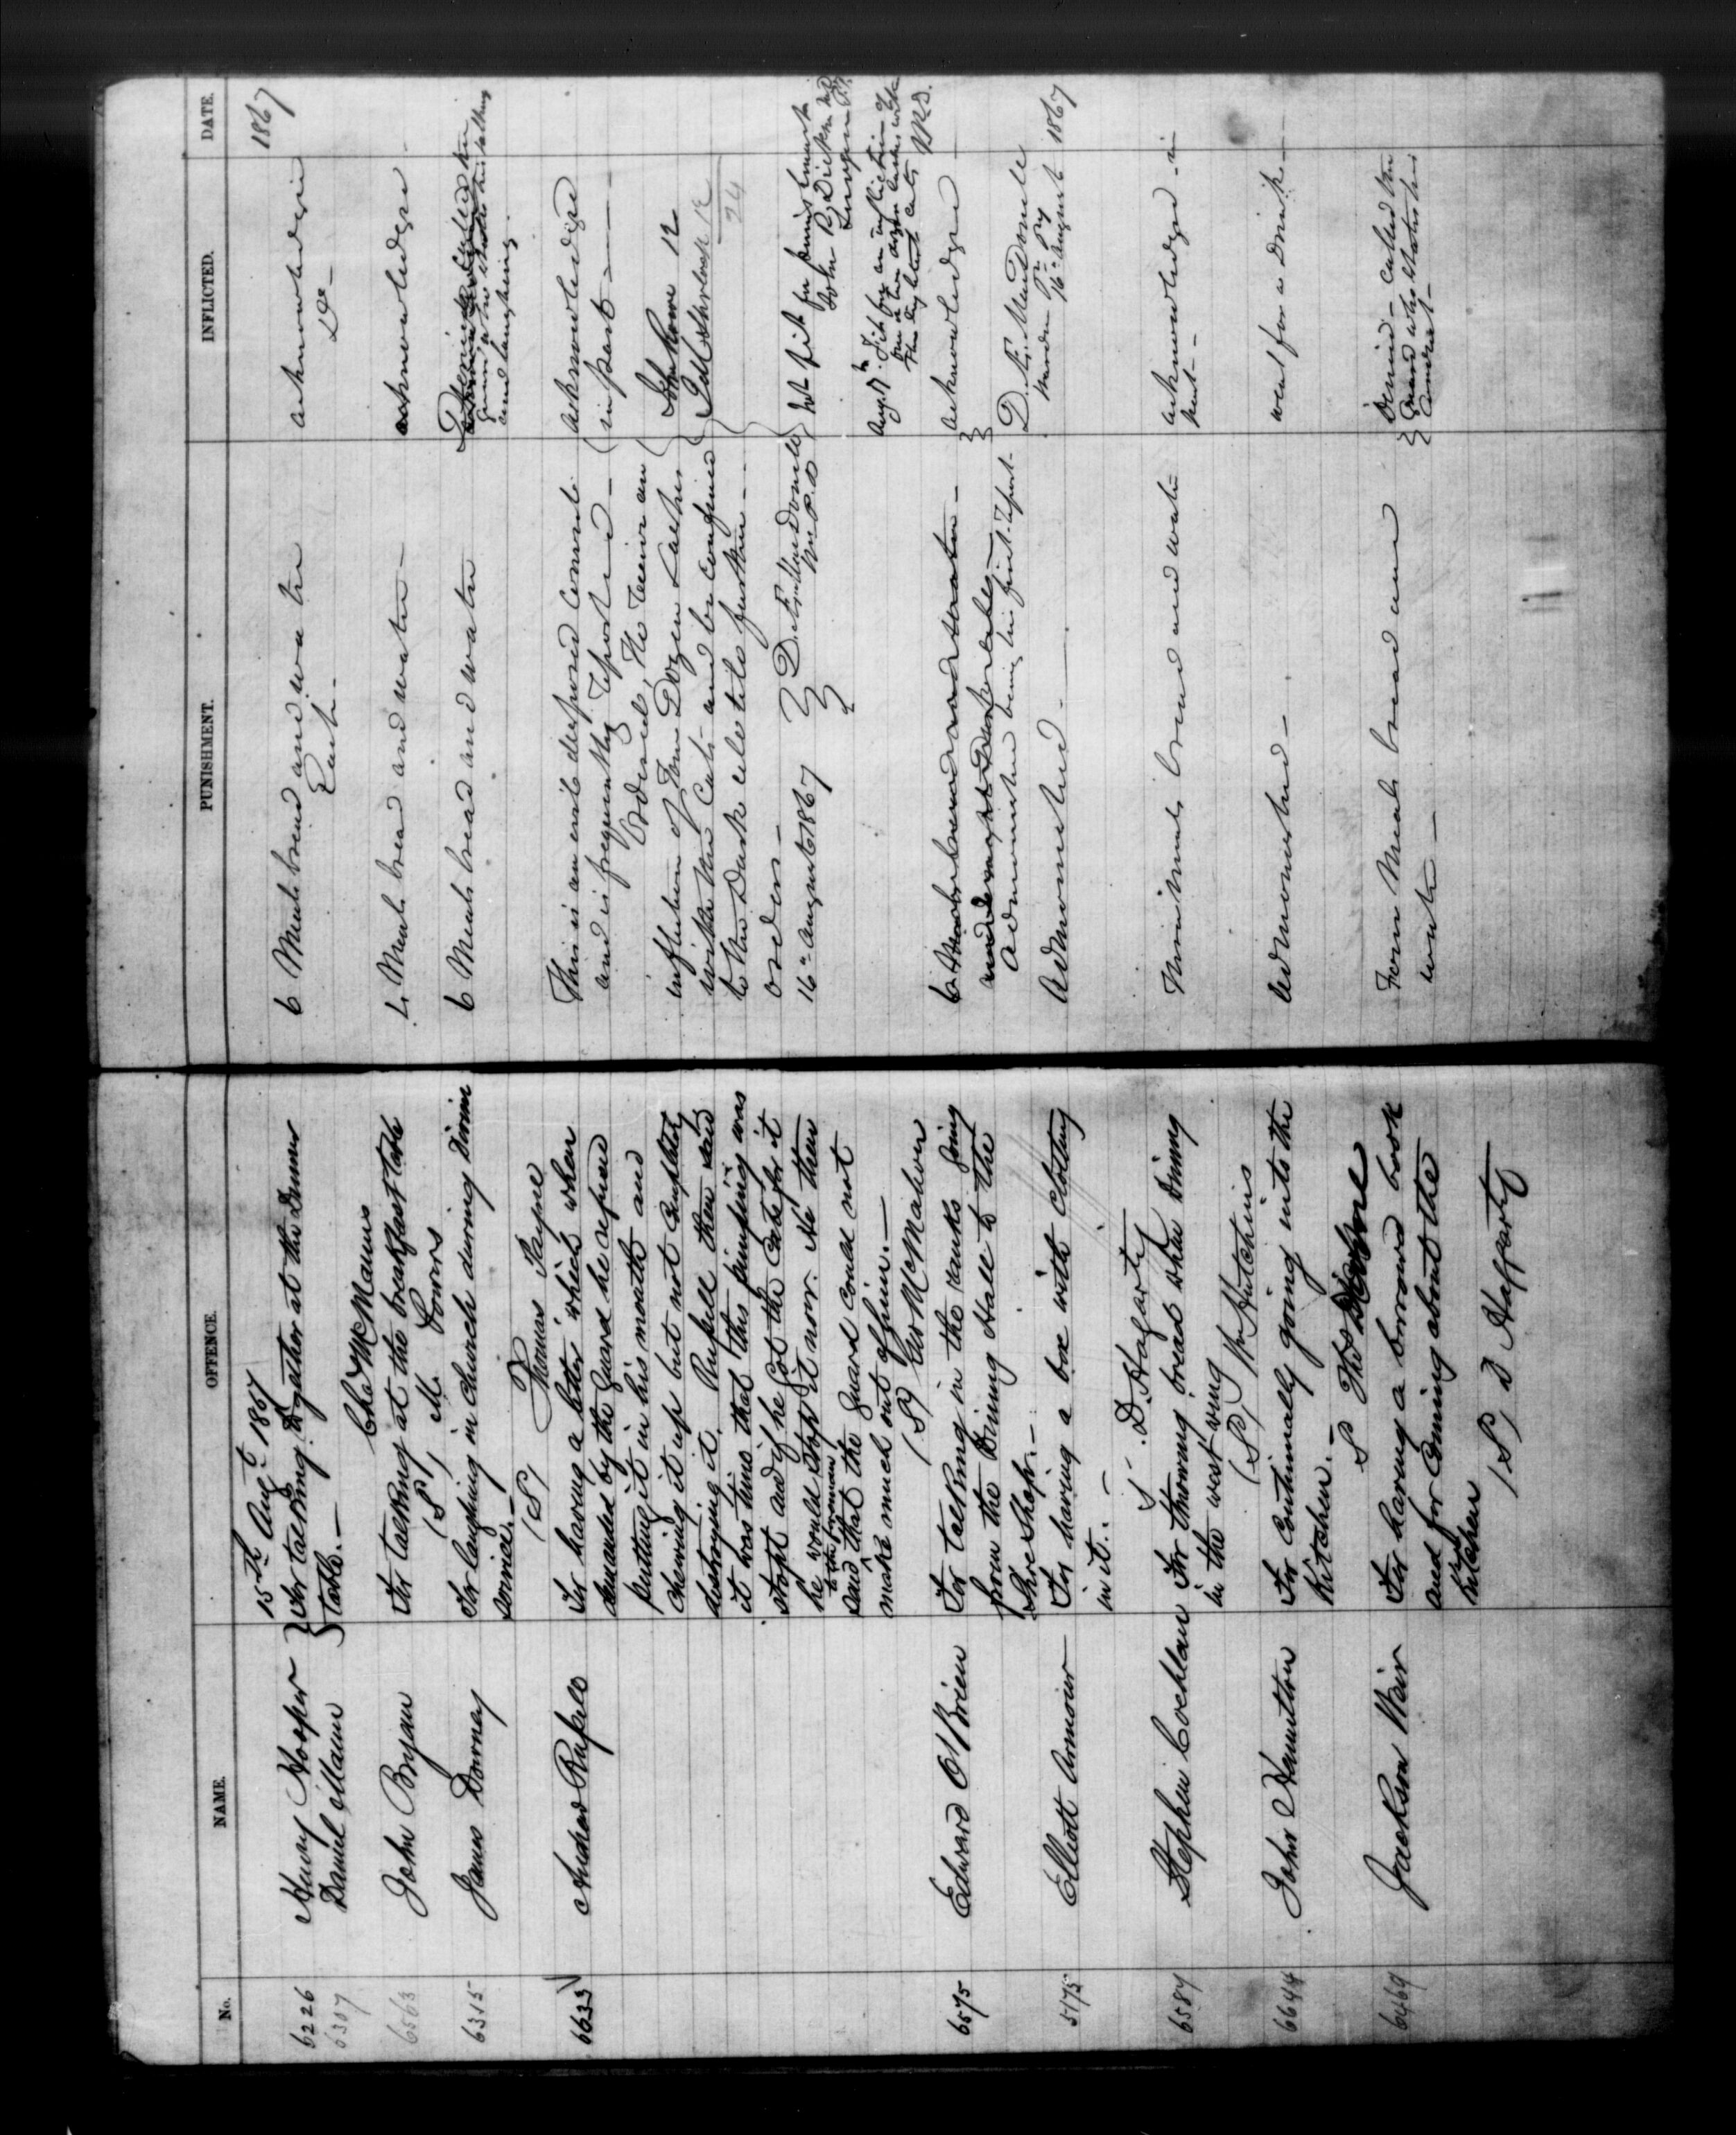 No. NAME. OFFENCE. PUNISHMENT. INFLICTED. DATE.
15th Augt 1867
1867
6226 Henry Hooper
6307 Daniel Mann
For talking together at the Dinner
table.—
Chs McManus
6 Meals bread and water
Each-
acknowledge
Do-
6563 John Bryan
For talking at the breakfast table
(S) M. Powers
4 Meals bread and water-
acknowledge
6315 James Downey
For laughing in church during Divine
service.-
(S) Thomas
6 Meals bread and water
and laughing.
6633 Andrew Russell
For having a letter which when
demanded by the Guard he refused
putting it in his mouth and
chewing it up but not completely
destroying it. Russell then said
it was time that this pimping was
stopt and if he got the Cats for it
he would stop it now. He then
said that the Guard could not
make much out of him.—
(S) Geo McMahon
This is an evil disposed convict
and is frequently reported-
Ordered, He receive an
infliction of Four Dozen Lashes
with the Cats and be confined
to the Dark cell till further
orders-
16th August 1867
acknowledged
in part-
12
12
24
Not fit for punishment
John R Dickson MD
Surgeon
Aug. 17th. Fit for an infliction of
one or two dozen lashes with
the cats
JRD.
6575 Edward O'Brien
For talking in the ranks going
from the Dining Hall to the
Shoe Shop.-
Admonished being his first report-
acknowledge
5175 Elliott Armour
For having a box with clothing
in it.-
S. D. Hagarty
Admonished-
16th August 1867
6587 Stephen Cochlan
For throwing bread when Dining
in the west wing
(S) Wm Hutchins
Nine Meals bread and water
acknowledge in
part-
6644 John Hamilton
For Continually going into the
Kitchen.-
S Thos
Admonished-
went for a Drink-
6469 Jackson Weir
For having a borrowed book
and for Coming about the
kitchen
(S) D Hafferty
Four Meals bread and
water-
Denied-